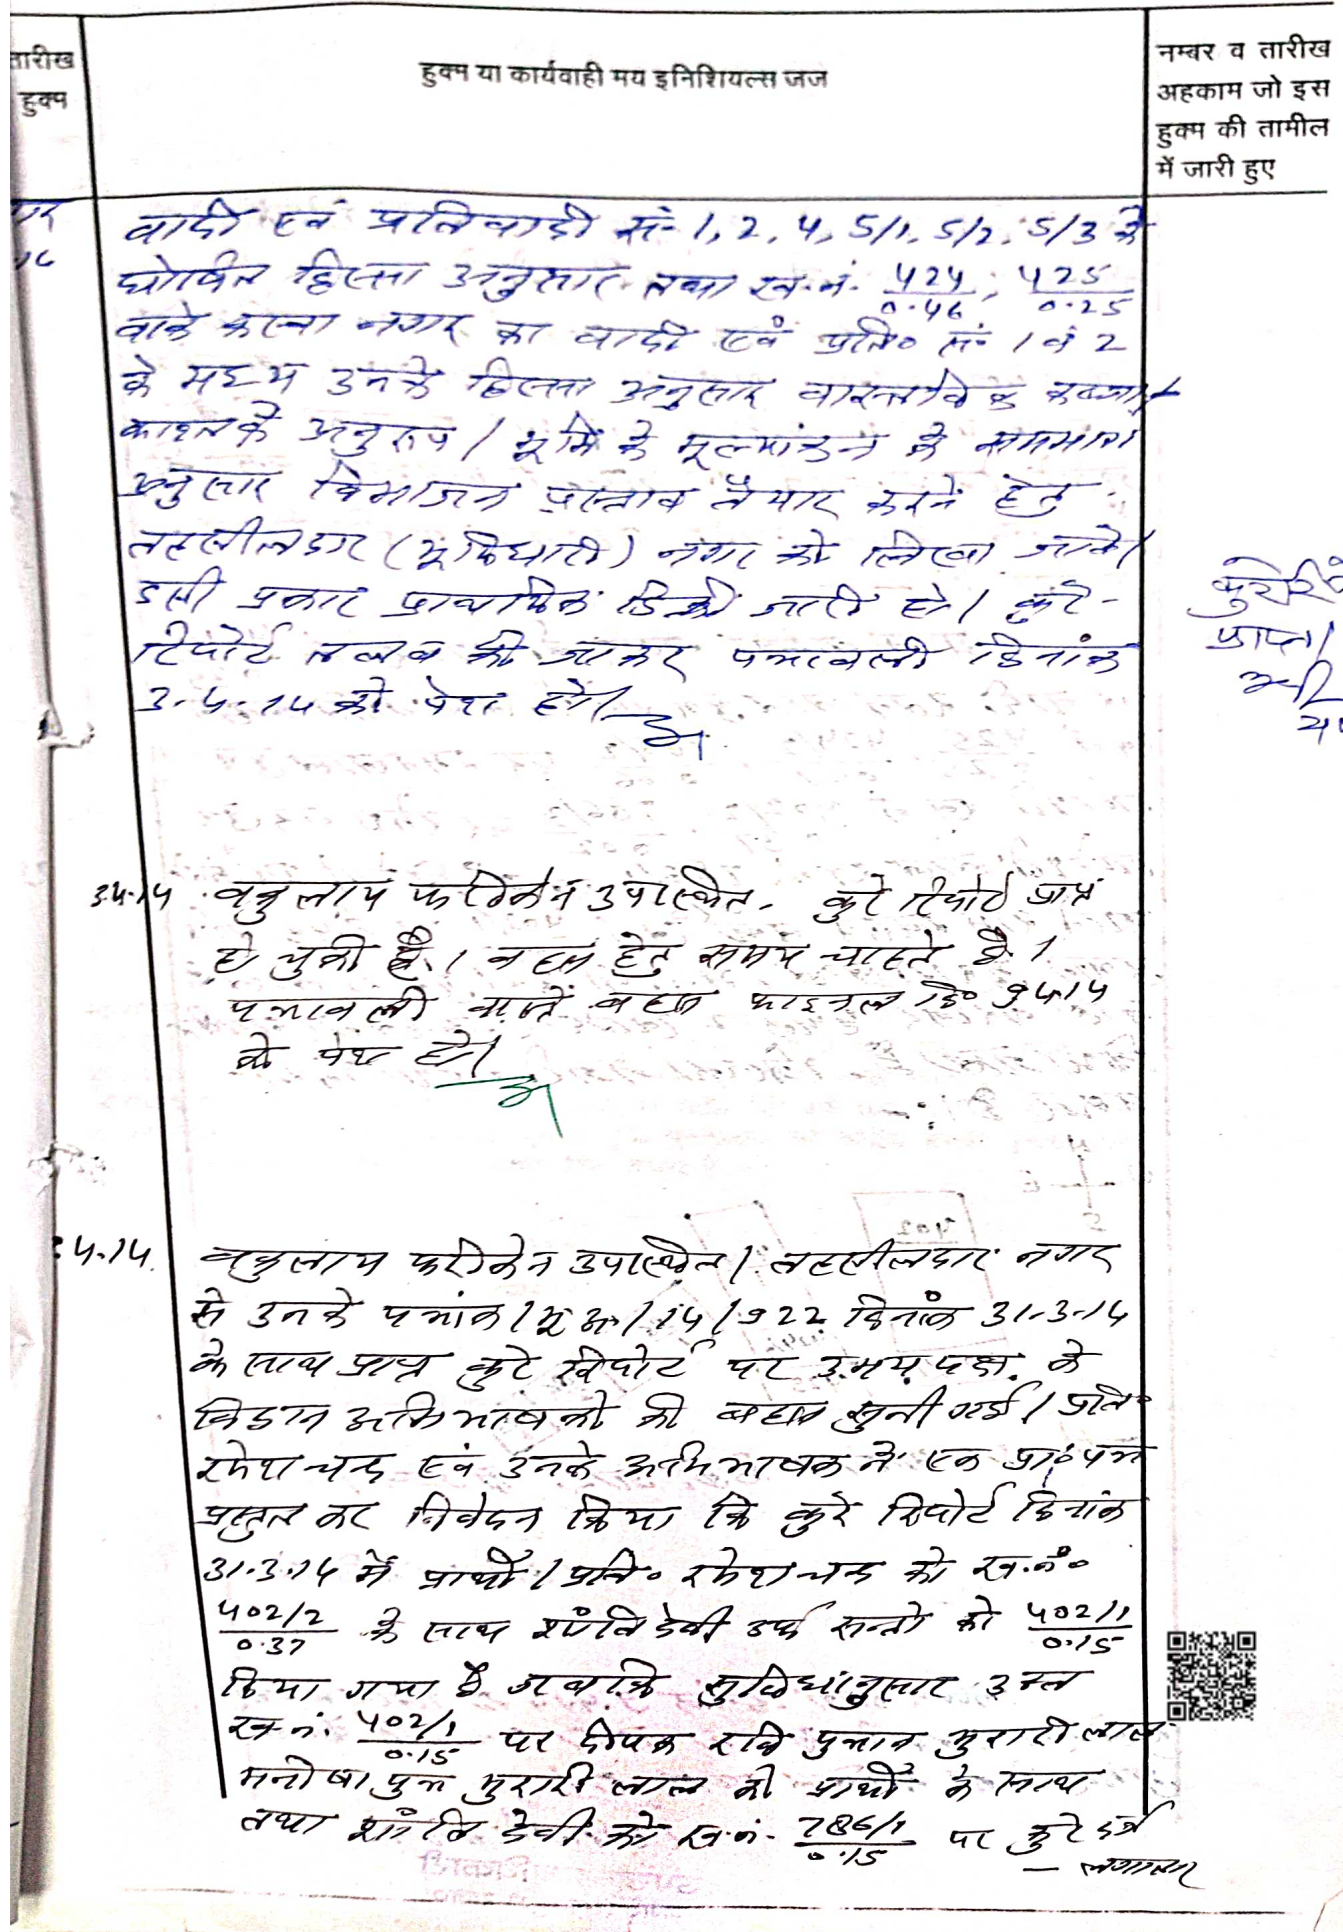 तारीख
हुक्म
हुक्म या कार्यवाही मय इनिशियल्स जज
नम्बर व तारीख
अहकाम जो इस
हुक्म की तामील
में जारी हुए
वादी एवं प्रतिवादी सं. 1, 2, 4, 5/1, 5/2, 5/3 के
घोषित हिस्सा अनुसार तथा ख.नं. 424/0.46, 425/0.25
वाके कस्बा नगर का वादी एवं प्रति० सं० 1 व 2
के मध्य उनके हिस्सा अनुसार वास्तविक कब्जा
काश्त के अनुरूप / भूमि के मूल्यांकन के समभाग
अनुसार विभाजन प्रस्ताव तैयार करने हेतु
तहसीलदार (भू.अभिधारी) नगर को लिखा जावे।
इसी प्रकार प्राथमिक डिक्री जारी हो। कुरे-
रिपोर्ट तलब की जाकर पत्रावली दिनांक
3.4.14 को पेश हो।
कुरे रि
प्राप्त।
3.4.14 वकुलाय फरीकेन उपस्थित. कुरे रिपोर्ट प्राप्त
हो चुकी है। बहस हेतु समय चाहते है।
पत्रावली वास्ते बहस फाइनल दि० 9.4.14
को पेश हो।
4.14. वकुलाय फरीकेन उपस्थित। तहसीलदार नगर
से उनके पत्रांक/भू.अ./14/922 दिनांक 31.3.14
के साथ प्राप्त कुरे रिपोर्ट पर उभय पक्ष के
विद्वान अभिभाषको की बहस सुनी गई। प्रति०
रमेश चन्द एवं उनके अभिभाषक ने एक प्रा० पत्र
प्रस्तुत कर निवेदन किया कि कुरे रिपोर्ट दिनांक
31.3.14 में प्रार्थी/प्रति० रमेश चन्द को ख.नं०
402/2/0.37 के साथ शांति देवी उर्फ सन्तो को 402/1/0.15
दिया गया है जबकि सुविधानुसार उक्त
ख.नं. 402/1/0.15 पर दीपक रवि पुत्रान मुरारी लाल
मनीषा पुत्र मुरारी लाल को प्रार्थी के साथ
तथा शांति देवी को ख.नं. 786/1/0.15 पर कुरे दर्ज
— लगातार